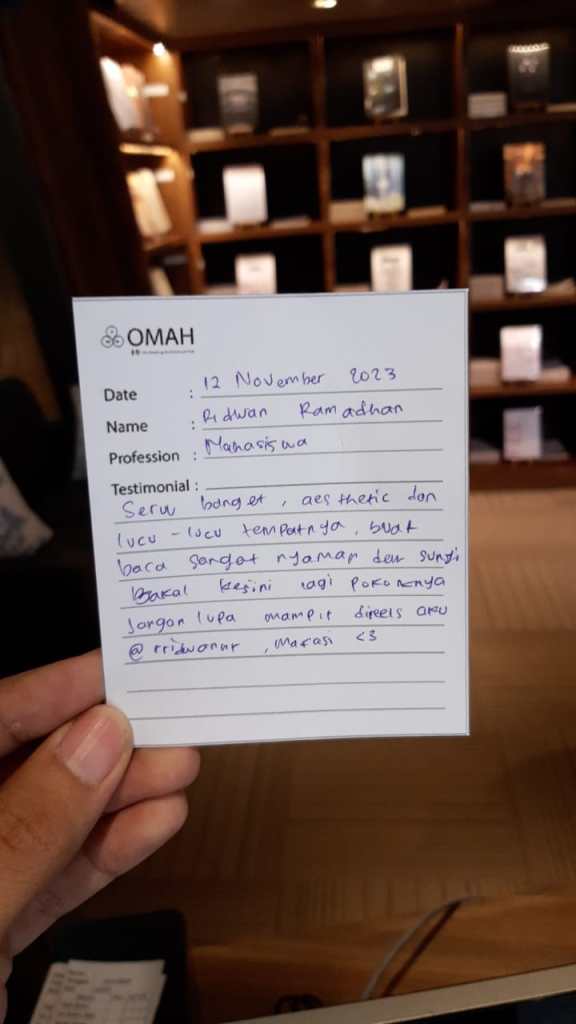 OMAH
Date : 12 November 2023
Name : Ridwan Ramadhan
Profession : Mahasiswa
Testimonial :
Seru banget, aesthetic dan
lucu-lucu tempatnya, buat
baca sangat nyaman den sunyi
Bakal kesini lagi pokoknya
Jangan lupa mampir direels aku
@rridwanur, Makasi <3